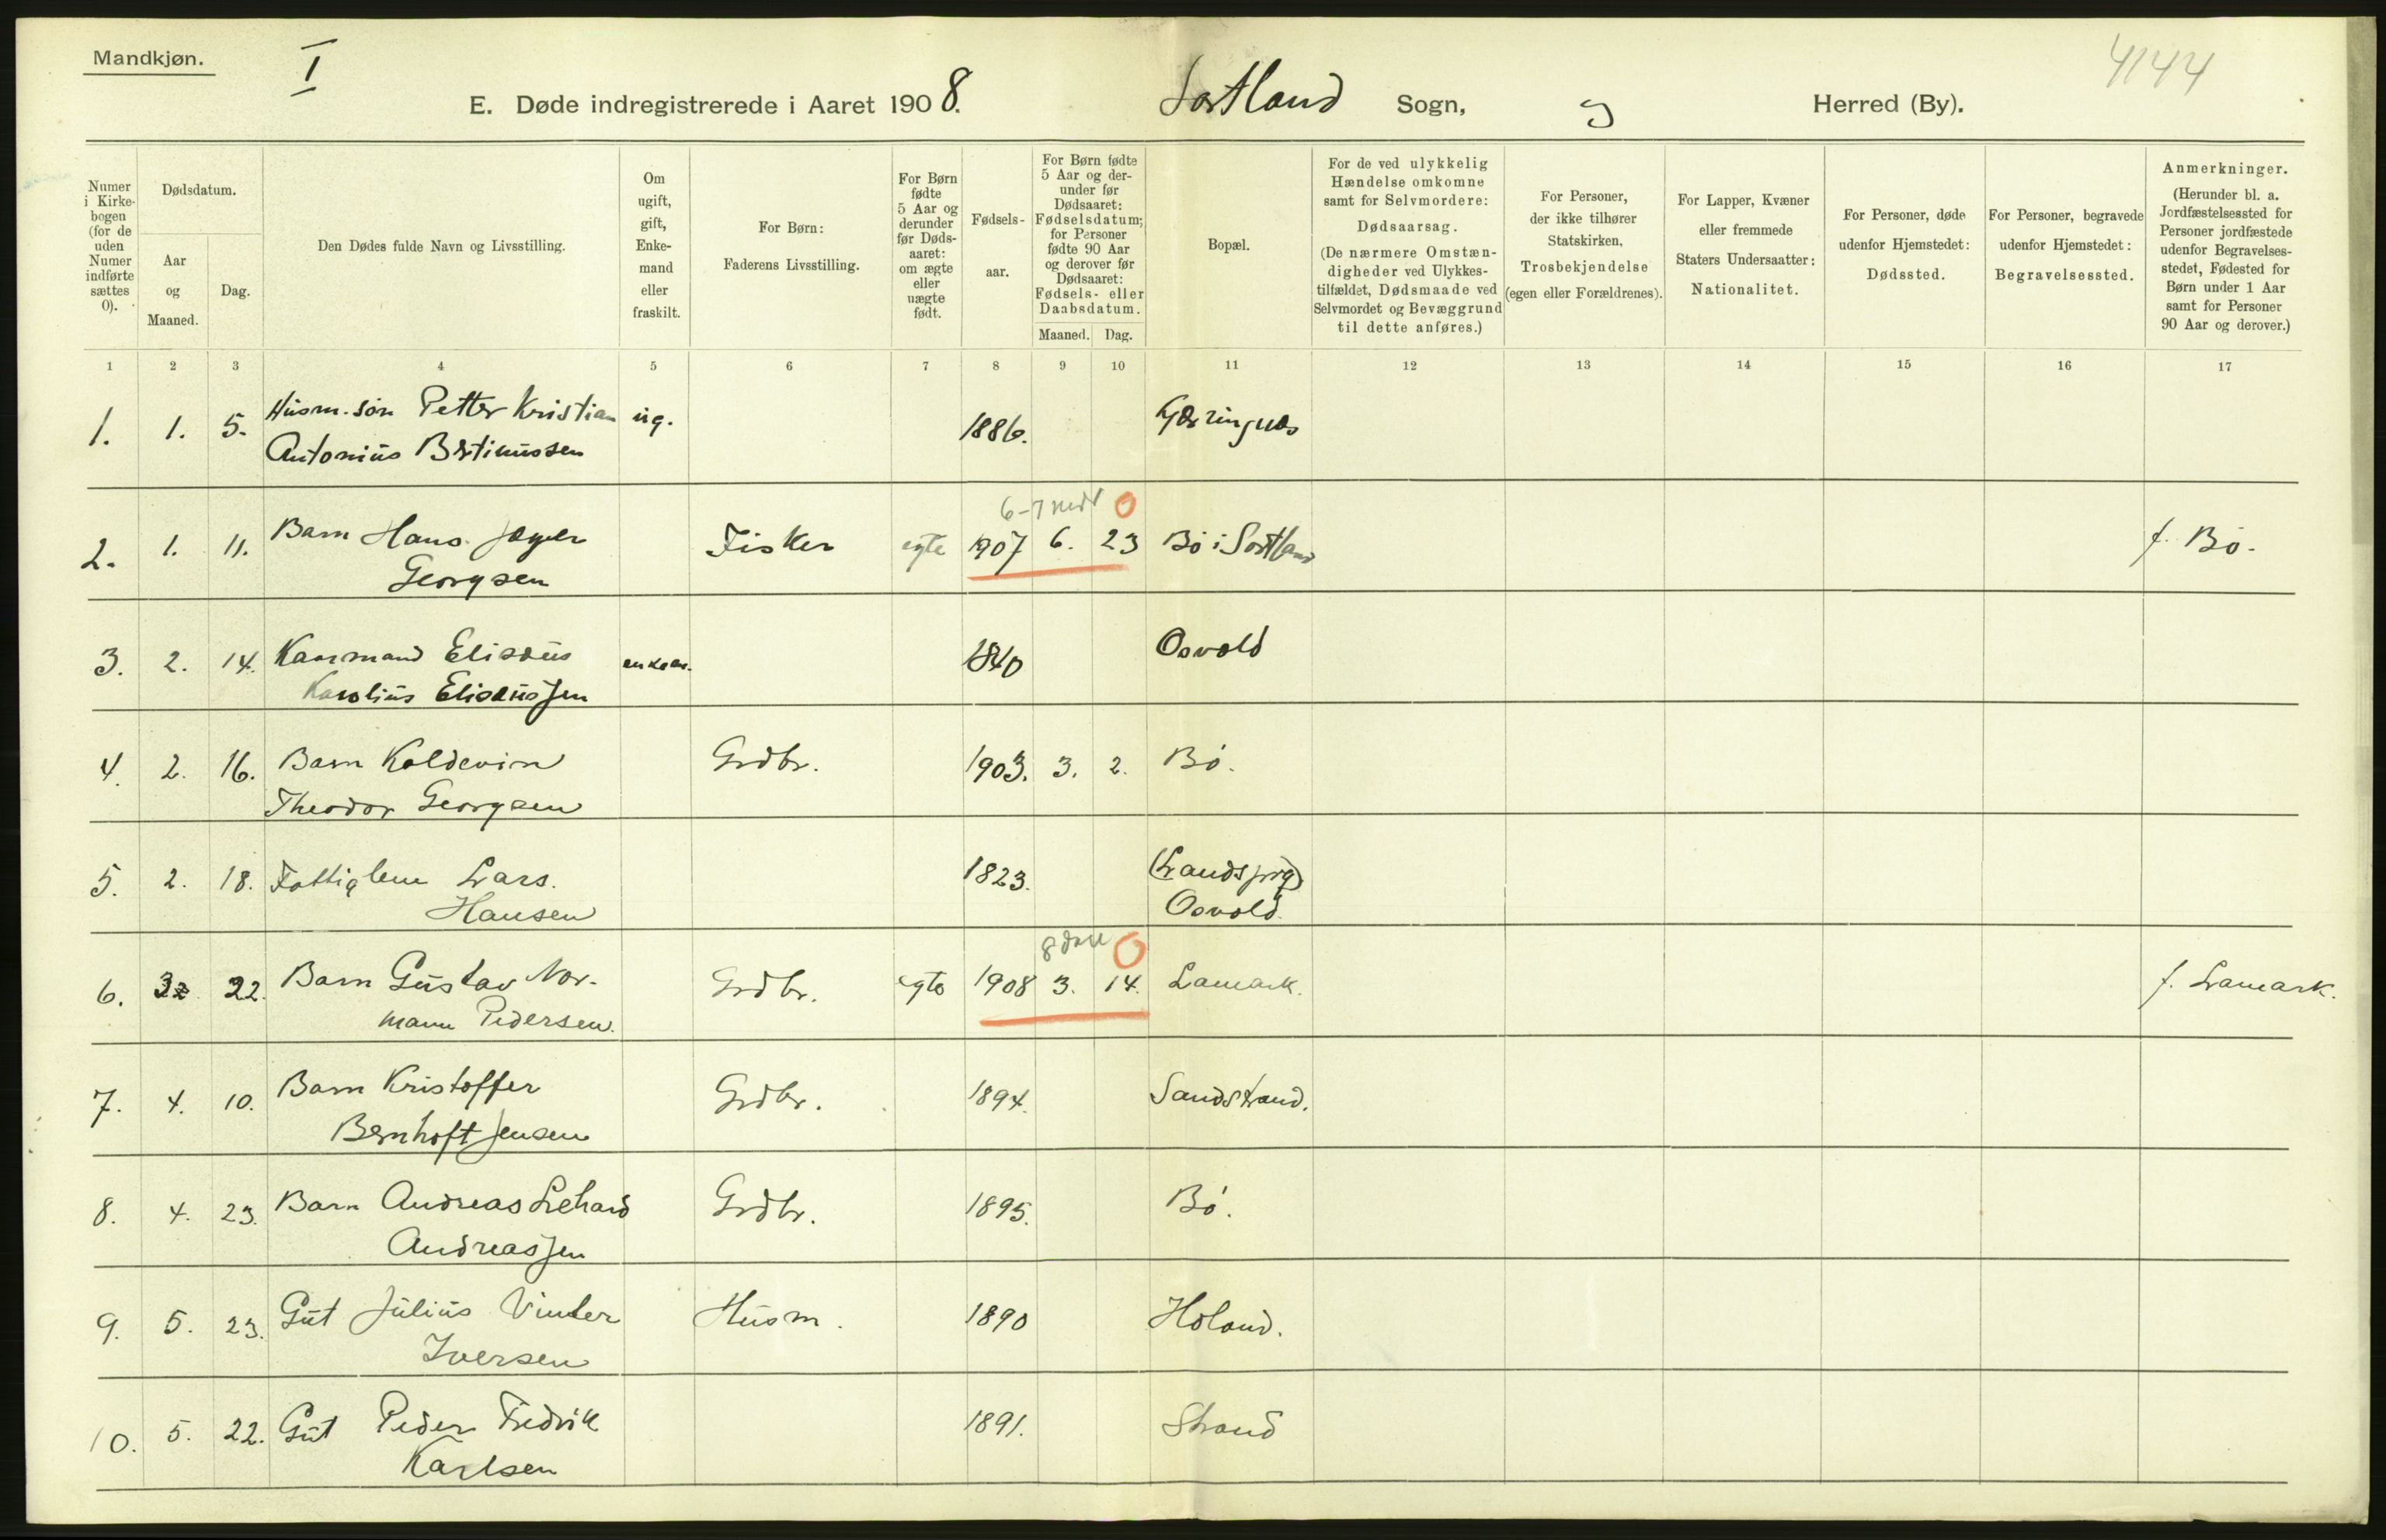 Mandkjøn.
I
4144
E. Døde indregistrerede i Aaret 1908.
Sortland Sogn, Herred (By).
Numer i Kirkebogen (for de uden Numer indførte sættes 0).
Dødsdatum.
Aar og Maaned.
Dag.
Den Dødes fulde Navn og Livsstilling.
Om ugift, gift, Enkemand eller fraskilt.
For Børn: Faderens Livsstilling.
For Børn fødte 5 Aar og derunder før Dødsaaret: om ægte eller uægte født.
Fødselsaar.
For Børn fødte 5 Aar og derunder før Dødsaaret: Fødselsdatum; for Personer fødte 90 Aar og derover før Dødsaaret: Fødsels- eller Daabsdatum.
Maaned. Dag.
Bopæl.
For de ved ulykkelig Hændelse omkomne samt for Selvmordere: Dødsaarsag. (De nærmere Omstændigheder ved Ulykkestilfældet, Dødsmaade ved Selvmordet og Bevæggrund til dette anføres.)
For Personer, der ikke tilhører Statskirken, Trosbekjendelse (egen eller Forældrenes).
For Lapper, Kvæner eller fremmede Staters Undersaatter: Nationalitet.
For Personer, døde udenfor Hjemstedet: Dødssted.
For Personer, begravede udenfor Hjemstedet: Begravelsessted.
Anmerkninger. (Herunder bl. a. Jordfæstelsessted for Personer jordfæstede udenfor Begravelsesstedet, Fødested for Børn under 1 Aar samt for Personer 90 Aar og derover.)
1 2 3 4 5 6 7 8 9 10 11 12 13 14 15 16 17
1. 1. 5. Husm. søn Petter Kristian ug. 1886.
Antonius Bertinussen
6-7 mdr 0
2. 1. 11. Barn Hans Jæger Fisker egte 1907 6. 23 Bø i Sortland f. Bø.
Georgsen
3. 2. 14. Kaarmand Elisæus enkem. 1840 Osvold
Karolius Elisæussen
4. 2. 16. Barn Koldevin Grdbr. 1903. 3. 2. Bø.
Theodor Georgsen
5. 2. 18. Fattiglem Lars. 1823.
Hansen Osvold.
8 dage 0
6. 3 22. Barn Gustav Nor- Grdbr. egte 1908 3. 14. Lamark. f. Lamark.
mann Pedersen.
7. 4. 10. Barn Kristoffer Grdbr. 1894. Sandstrand.
Bernhoft Jensen
8. 4. 23. Barn Andreas Lehard Grdbr. 1895. Bø.
Andreassen
9. 5. 23. Gut Julius Vinter Husm. 1890 Holand.
Iversen
10. 5. 22. Gut Peder Fredrik 1891. Strand
Karlsen